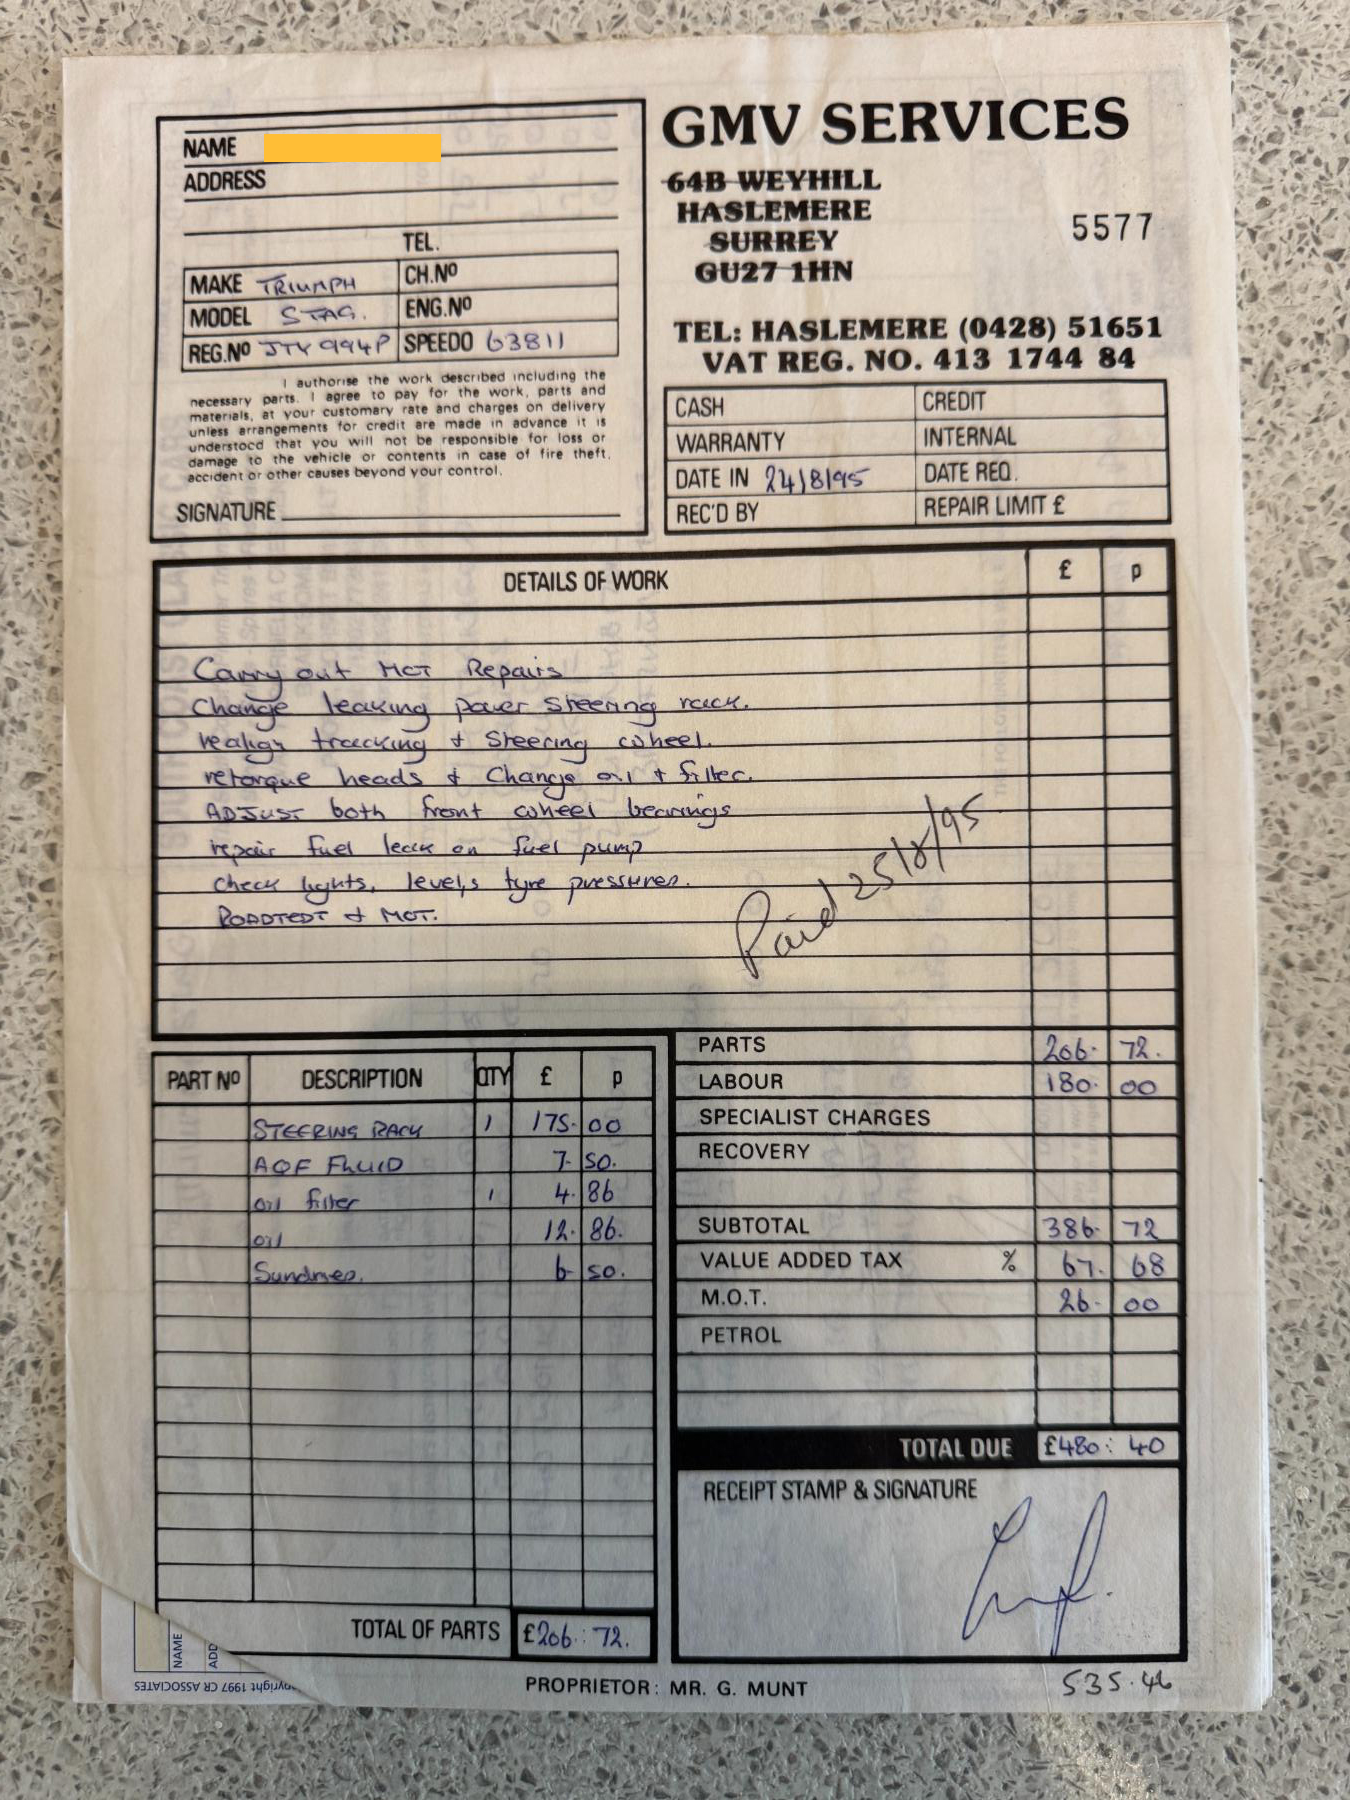 GMV SERVICES
64B WEYHILL
HASLEMERE
SURREY
GU27 1HN
5577
TEL: HASLEMERE (0428) 51651
VAT REG. NO. 413 1744 84
NAME
ADDRESS
TEL.
MAKE TRIUMPH CH.Nº
MODEL STAG. ENG.Nº
REG.Nº JTK 994P SPEEDO 63811
I authorise the work described including the
necessary parts. I agree to pay for the work, parts and
materials, at your customary rate and charges on delivery
unless arrangements for credit are made in advance it is
understood that you will not be responsible for loss or
damage to the vehicle or contents in case of fire theft,
accident or other causes beyond your control.
SIGNATURE
CASH CREDIT
WARRANTY INTERNAL
DATE IN 24/8/95 DATE REQ.
REC'D BY REPAIR LIMIT £
DETAILS OF WORK £ p
Carry out MOT Repairs
Change leaking power Steering rack.
realign tracking & Steering wheel.
retorque heads & Change oil & filter.
ADJUST both front wheel bearings
repair fuel leak on fuel pump
check lights, levels tyre pressures.
ROADTEDT & MOT.
Paid 25/8/95
PART Nº DESCRIPTION QTY £ p
STEERING RACK 1 175. 00
AQF FLUID 7. 50.
oil filter 1 4. 86
oil 12. 86.
Sundries. 6 50.
TOTAL OF PARTS £206 : 72.
PARTS 206. 72.
LABOUR 180. 00
SPECIALIST CHARGES
RECOVERY
SUBTOTAL 386. 72
VALUE ADDED TAX % 67. 68
M.O.T. 26. 00
PETROL
TOTAL DUE £480 : 40
RECEIPT STAMP & SIGNATURE
PROPRIETOR: MR. G. MUNT
535.46
NAME
ADD
pyright 1997 CR ASSOCIATES